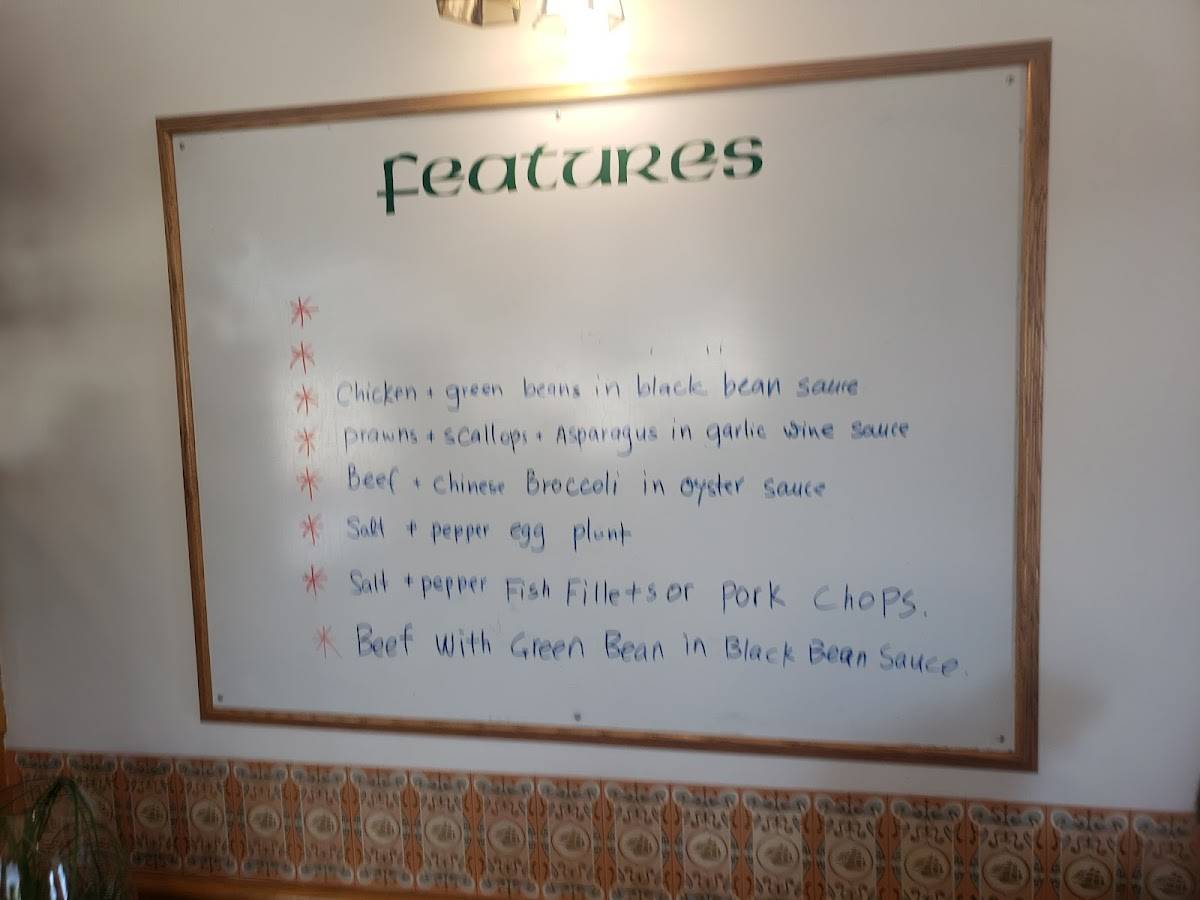 features
*
*
* Chicken + green beans in black bean sauce
* prawns + scallops + Asparagus in garlic wine sauce
* Beef + chinese Broccoli in oyster sauce
* Salt + pepper egg plunt
* Salt + pepper Fish Fillets or Pork Chops.
* Beef With Green Bean in Black Bean Sauce.